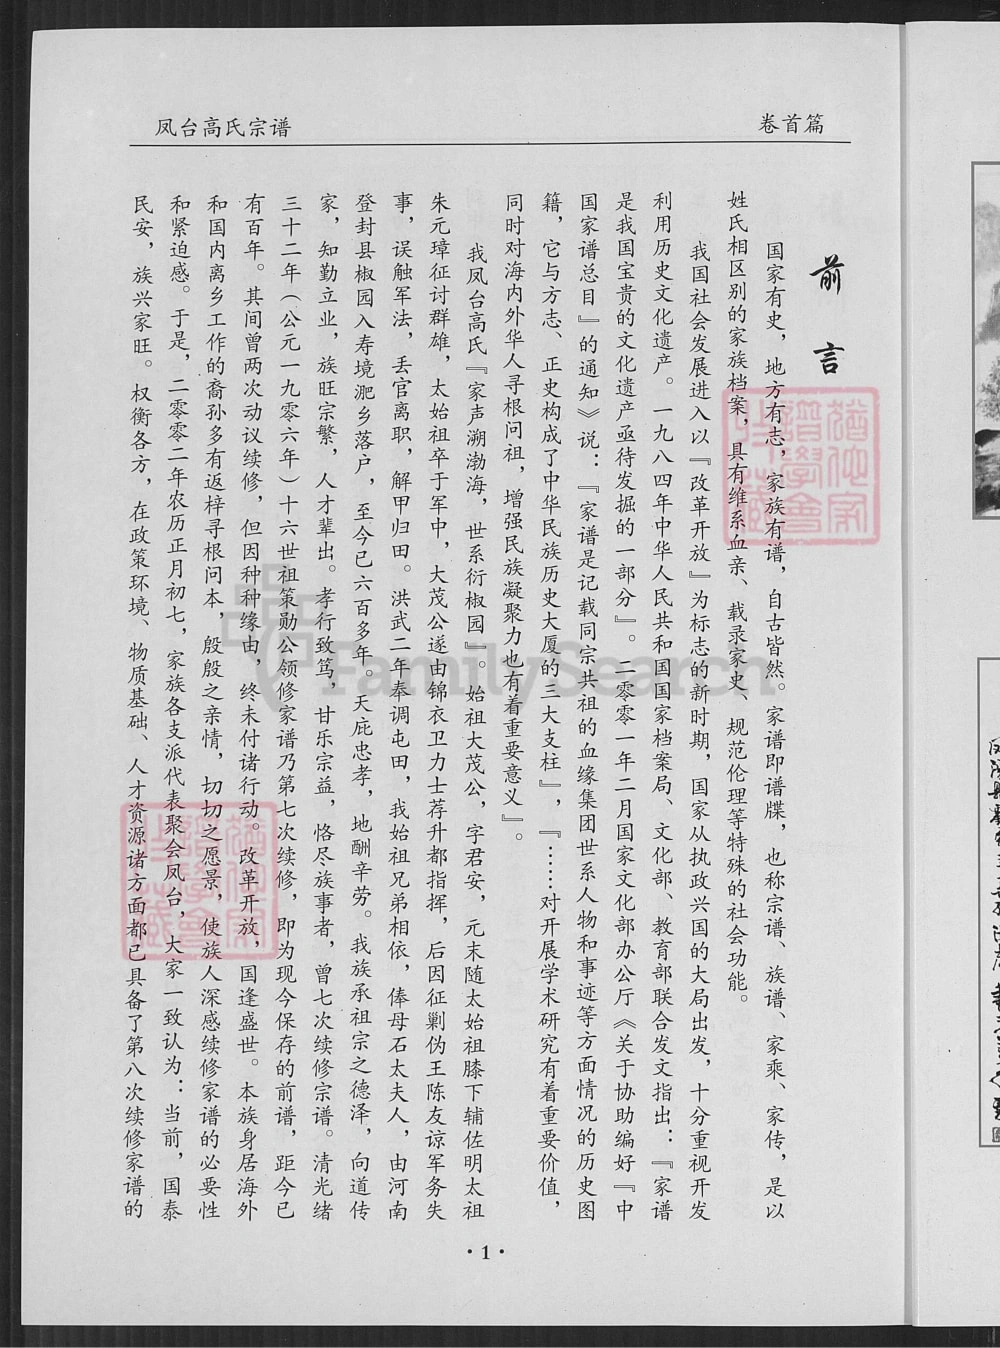 凤台高氏宗谱
卷首篇
前言
国家有史，地方有志，家族有谱，自古皆然。家谱即谱牒，也称宗谱、族谱、家乘、家传，是以
姓氏相区别的家族档案，具有维系血亲、载录家史、规范伦理等特殊的社会功能。
我国社会发展进入以『改革开放』为标志的新时期，国家从执政兴国的大局出发，十分重视开发
利用历史文化遗产。一九八四年中华人民共和国国家档案局、文化部、教育部联合发文指出：『家谱
是我国宝贵的文化遗产亟待发掘的一部分』。二零零一年二月国家文化部办公厅《关于协助编好『中
国家谱总目』的通知》说：『家谱是记载同宗共祖的血缘集团世系人物和事迹等方面情况的历史图
籍，它与方志、正史构成了中华民族历史大厦的三大支柱』，『……对开展学术研究有着重要价值，
同时对海内外华人寻根问祖，增强民族凝聚力也有着重要意义』。
我凤台高氏『家声溯渤海，世系衍椒园』。始祖大茂公，字君安，元末随太始祖膝下辅佐明太祖
朱元璋征讨群雄，太始祖卒于军中，大茂公遂由锦衣卫力士荐升都指挥，后因征剿伪王陈友谅军务失
事，误触军法，丢官离职，解甲归田。洪武二年奉调屯田，我始祖兄弟相依，俸母石太夫人，由河南
登封县椒园入寿境淝乡落户，至今已六百多年。天庇忠孝，地酬辛劳。我族承祖宗之德泽，向道传
家，知勤立业，族旺宗繁，人才辈出。孝行致笃，甘乐宗益，恪尽族事者，曾七次续修宗谱。清光绪
三十二年（公元一九零六年）十六世祖策勋公领修家谱乃第七次续修，即为现今保存的前谱，距今已
有百年。其间曾两次动议续修，但因种种缘由，终未付诸行动。改革开放，国逢盛世。本族身居海外
和国内离乡工作的裔孙多有返梓寻根问本，殷殷之亲情，切切之愿景，使族人深感续修家谱的必要性
和紧迫感。于是，二零零二年农历正月初七，家族各支派代表聚会凤台，大家一致认为：当前，国泰
民安，族兴家旺。权衡各方，在政策环境、物质基础、人才资源诸方面都已具备了第八次续修家谱的
·1·
FamilySearch